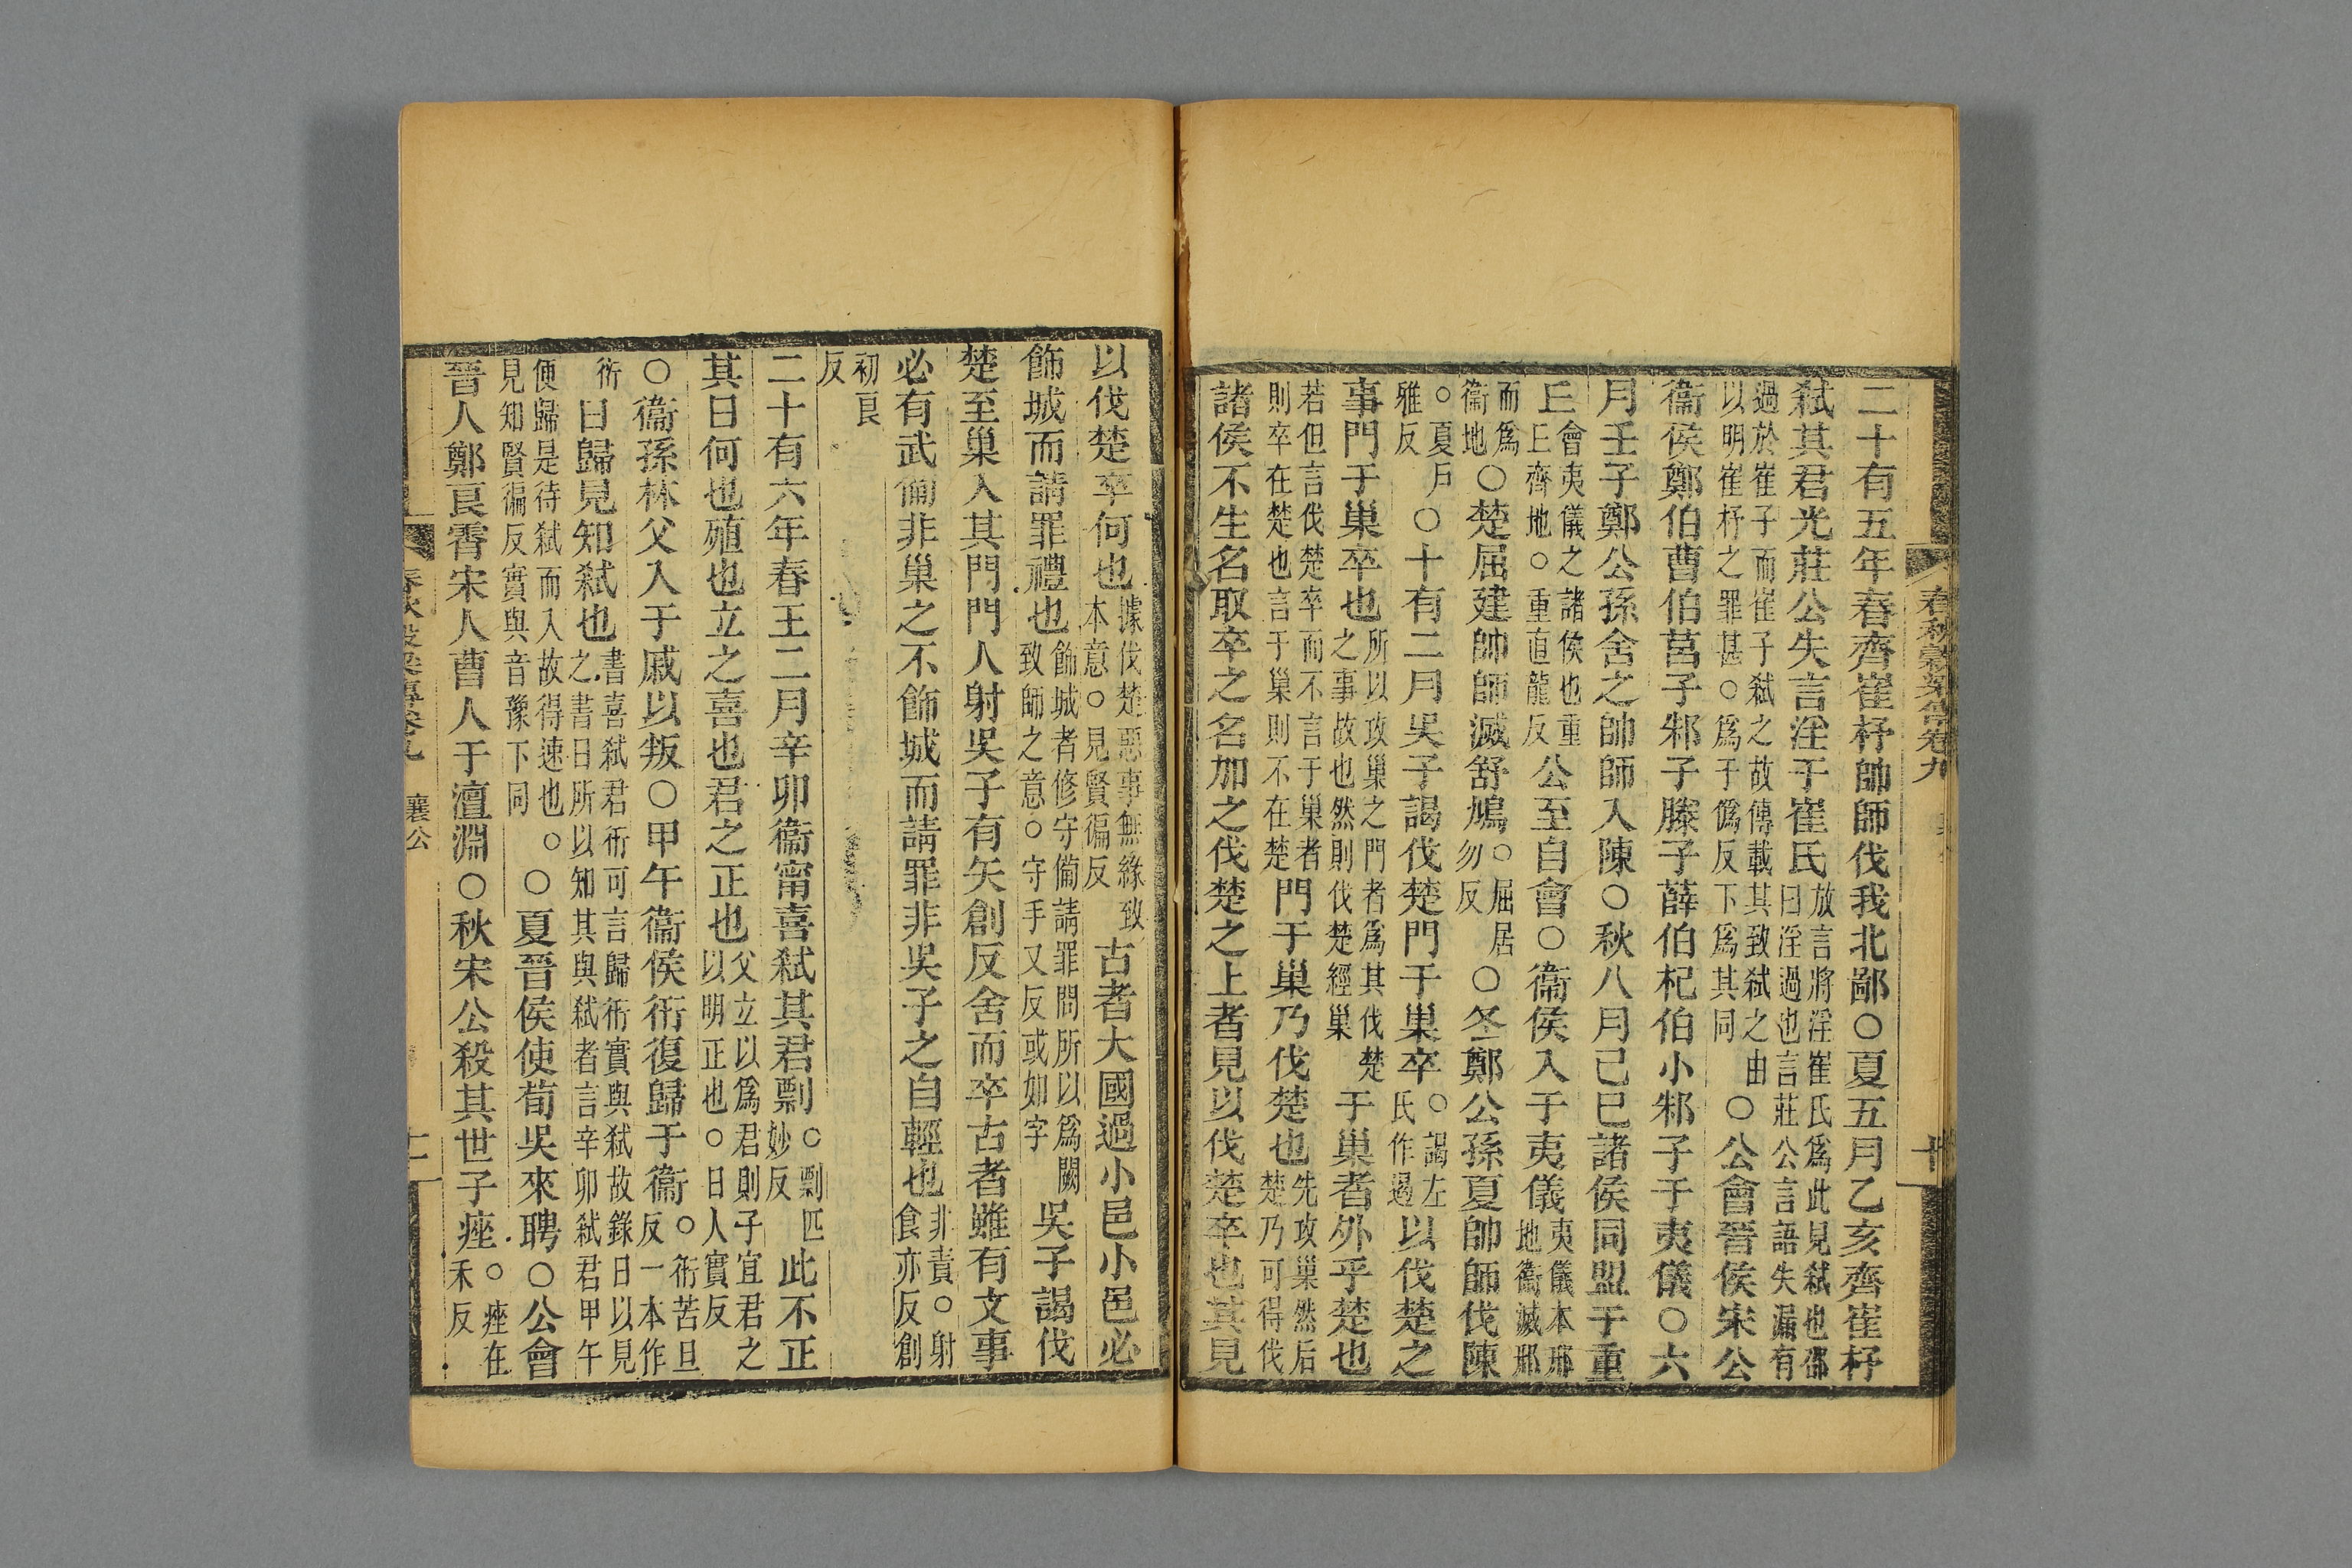 二十有五年春齊崔杼帥師伐我北鄙○夏五月乙亥齊崔杼
弒其君光莊公失言淫于崔氏放言將淫崔氏爲此見弒也邵曰淫過也言莊公言語失漏有
過於崔子而崔子弒之故傳載其致弒之由以明崔杼之罪甚○爲于僞反下爲其同○公會晉侯宋公
衞侯鄭伯曹伯莒子邾子滕子薛伯杞伯小邾子于夷儀○六
月壬子鄭公孫舍之帥師入陳○秋八月己巳諸侯同盟于重
丘會夷儀之諸侯也重丘齊地○重直龍反公至自會○衞侯入于夷儀夷儀本邢地衞滅邢
而爲衞地○楚屈建帥師滅舒鳩○屈居勿反○冬鄭公孫夏帥師伐陳
○夏戶雅反○十有二月吳子謁伐楚門于巢卒○謁左氏作遏以伐楚之
事門于巢卒也所以攻巢之門者爲其伐楚之事故也然則伐楚經巢于巢者外乎楚也
若但言伐楚卒而不言于巢者則卒在楚也言于巢則不在楚門于巢乃伐楚也先攻巢然后楚乃可得伐
諸侯不生名取卒之名加之伐楚之上者見以伐楚卒也其見
春秋穀梁傳卷九
十
以伐楚卒何也據伐楚惡事無緣致本意○見賢徧反古者大國過小邑小邑必
飾城而請罪禮也飾城者修守備請罪問所以爲闕致師之意○守手又反或如字吳子謁伐
楚至巢入其門門人射吳子有矢創反舍而卒古者雖有文事
必有武備非巢之不飾城而請罪非吳子之自輕也非責○射食亦反創
初良反
二十有六年春王二月辛卯衞甯喜弒其君剽○剽匹妙反此不正
其日何也殖也立之喜也君之正也父立以爲君則子宜君之以明正也○日人實反
○衞孫林父入于戚以叛○甲午衞侯衎復歸于衞○衎苦旦反一本作
衎日歸見知弒也書喜弒君衎可言歸衎實與弒故錄日以見之書日所以知其與弒者言辛卯弒君甲午
便歸是待弒而入故得速也○見知賢徧反實與音豫下同○夏晉侯使荀吳來聘○公會
晉人鄭良霄宋人曹人于澶淵○秋宋公殺其世子痤○痤在禾反
春秋穀梁傳卷九
襄公